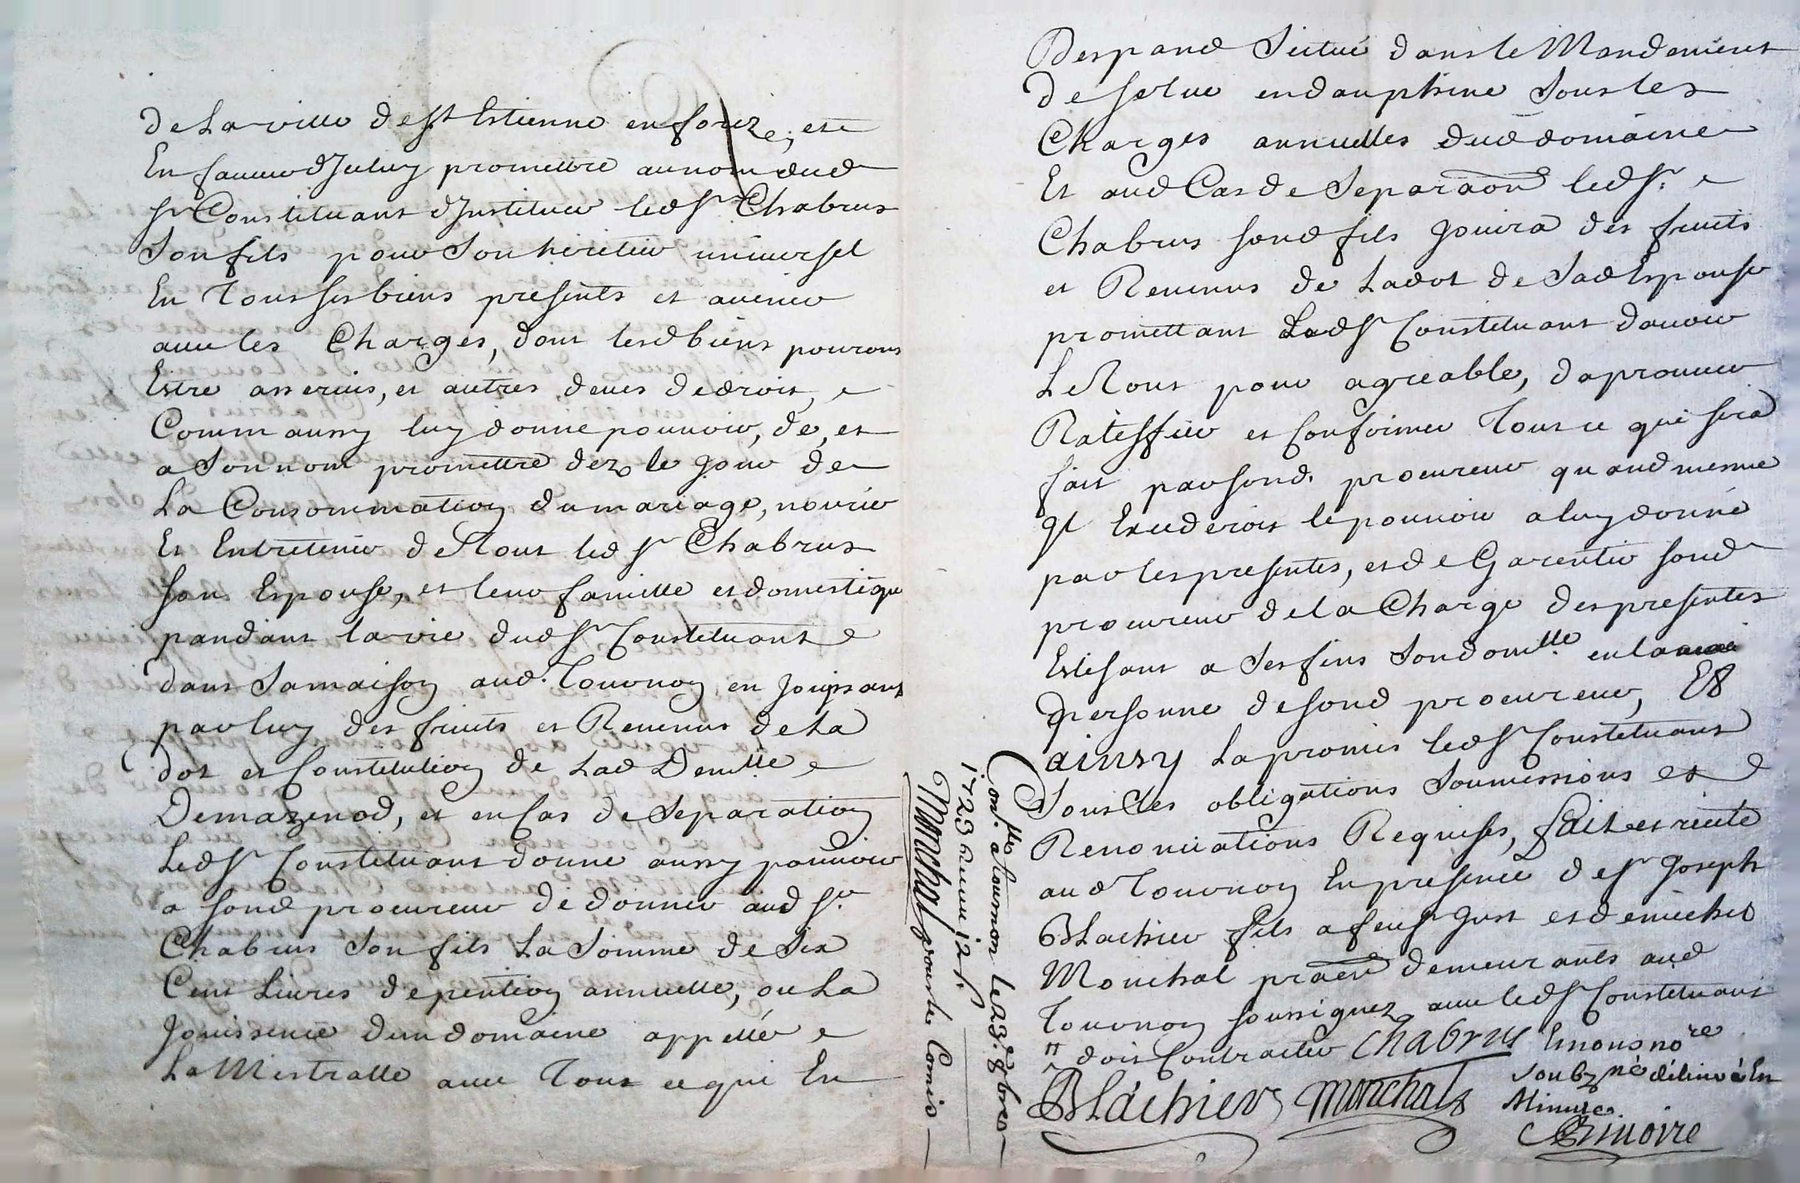 de la ville de st Estienne en forez, et
En faveur d'Jceluy promettre au nom dud
sr Constituant d'Jnstituer led sr Chabrus
Son fils pour Son heritier universel
En Tous ses biens presents et avenir
avec les Charges, dont lesd biens pouront
Estre asservis, et autres deues de droit,
Comm aussy luy donne pouvoir, de, et
a Son nom promettre dez le jour de
La Consommation du mariage, nourir
Et Entretenir de Tout led sr Chabrus
son Espouse, et leur famille et domestique
pandant la vie dud sr Constituant
dans Sa maison aud. Tournon en jouissant
par luy des fruits et Revenus de la
dot et Constitution de lad Demlle
Demazenod, et en Cas de Separation
Led sr Constituant donne aussy pouvoir
a sond procureur de donner aud sr.
Chabrus Son fils La Somme de Six
Cent Livres de pention annuelle, ou La
Jouissence d'un domaine appellé
La Mistralle avec Tout ce qui En
Despand Scitué dans le Mandement
de en dauphine Sous les
Charges annuelles dud domaine
Et aud Cas de Separaon led sr.
Chabrus sond fils jouira des fruits
et Revenus de Ladot de Sad Espouse
promettant Led sr Constituant d'avoir
Le Tout pour agreable, d'aprouver
Ratiffier et Confirmer Tout ce qui sera
fait par sond. procureur quand mesme
Jl Excederoit le pouvoir a luy donné
par les presentes, et de Garentir sond
procureur de la Charge des presentes
Elisant a Ses fins Son domlle en la
personne de sond procureur, Et
ainsy La promis led sr Constituant
Sous les obligations Soumissions et
Renonciations Requises, fait et récité
aud Tournon En presence de sr Joseph
Blachier fils a feu sr Just et de michel
Monchal praen demeurants aud
Tournon soussignez avec led sr Constituant
doit Contracter Chabrus Et nous nore
Soubzné délivré En
Minute
Blachier Monchal
Conllé a tournon le 23e 8bre
1723 Receu 12 s.
Monchal pour le Comis